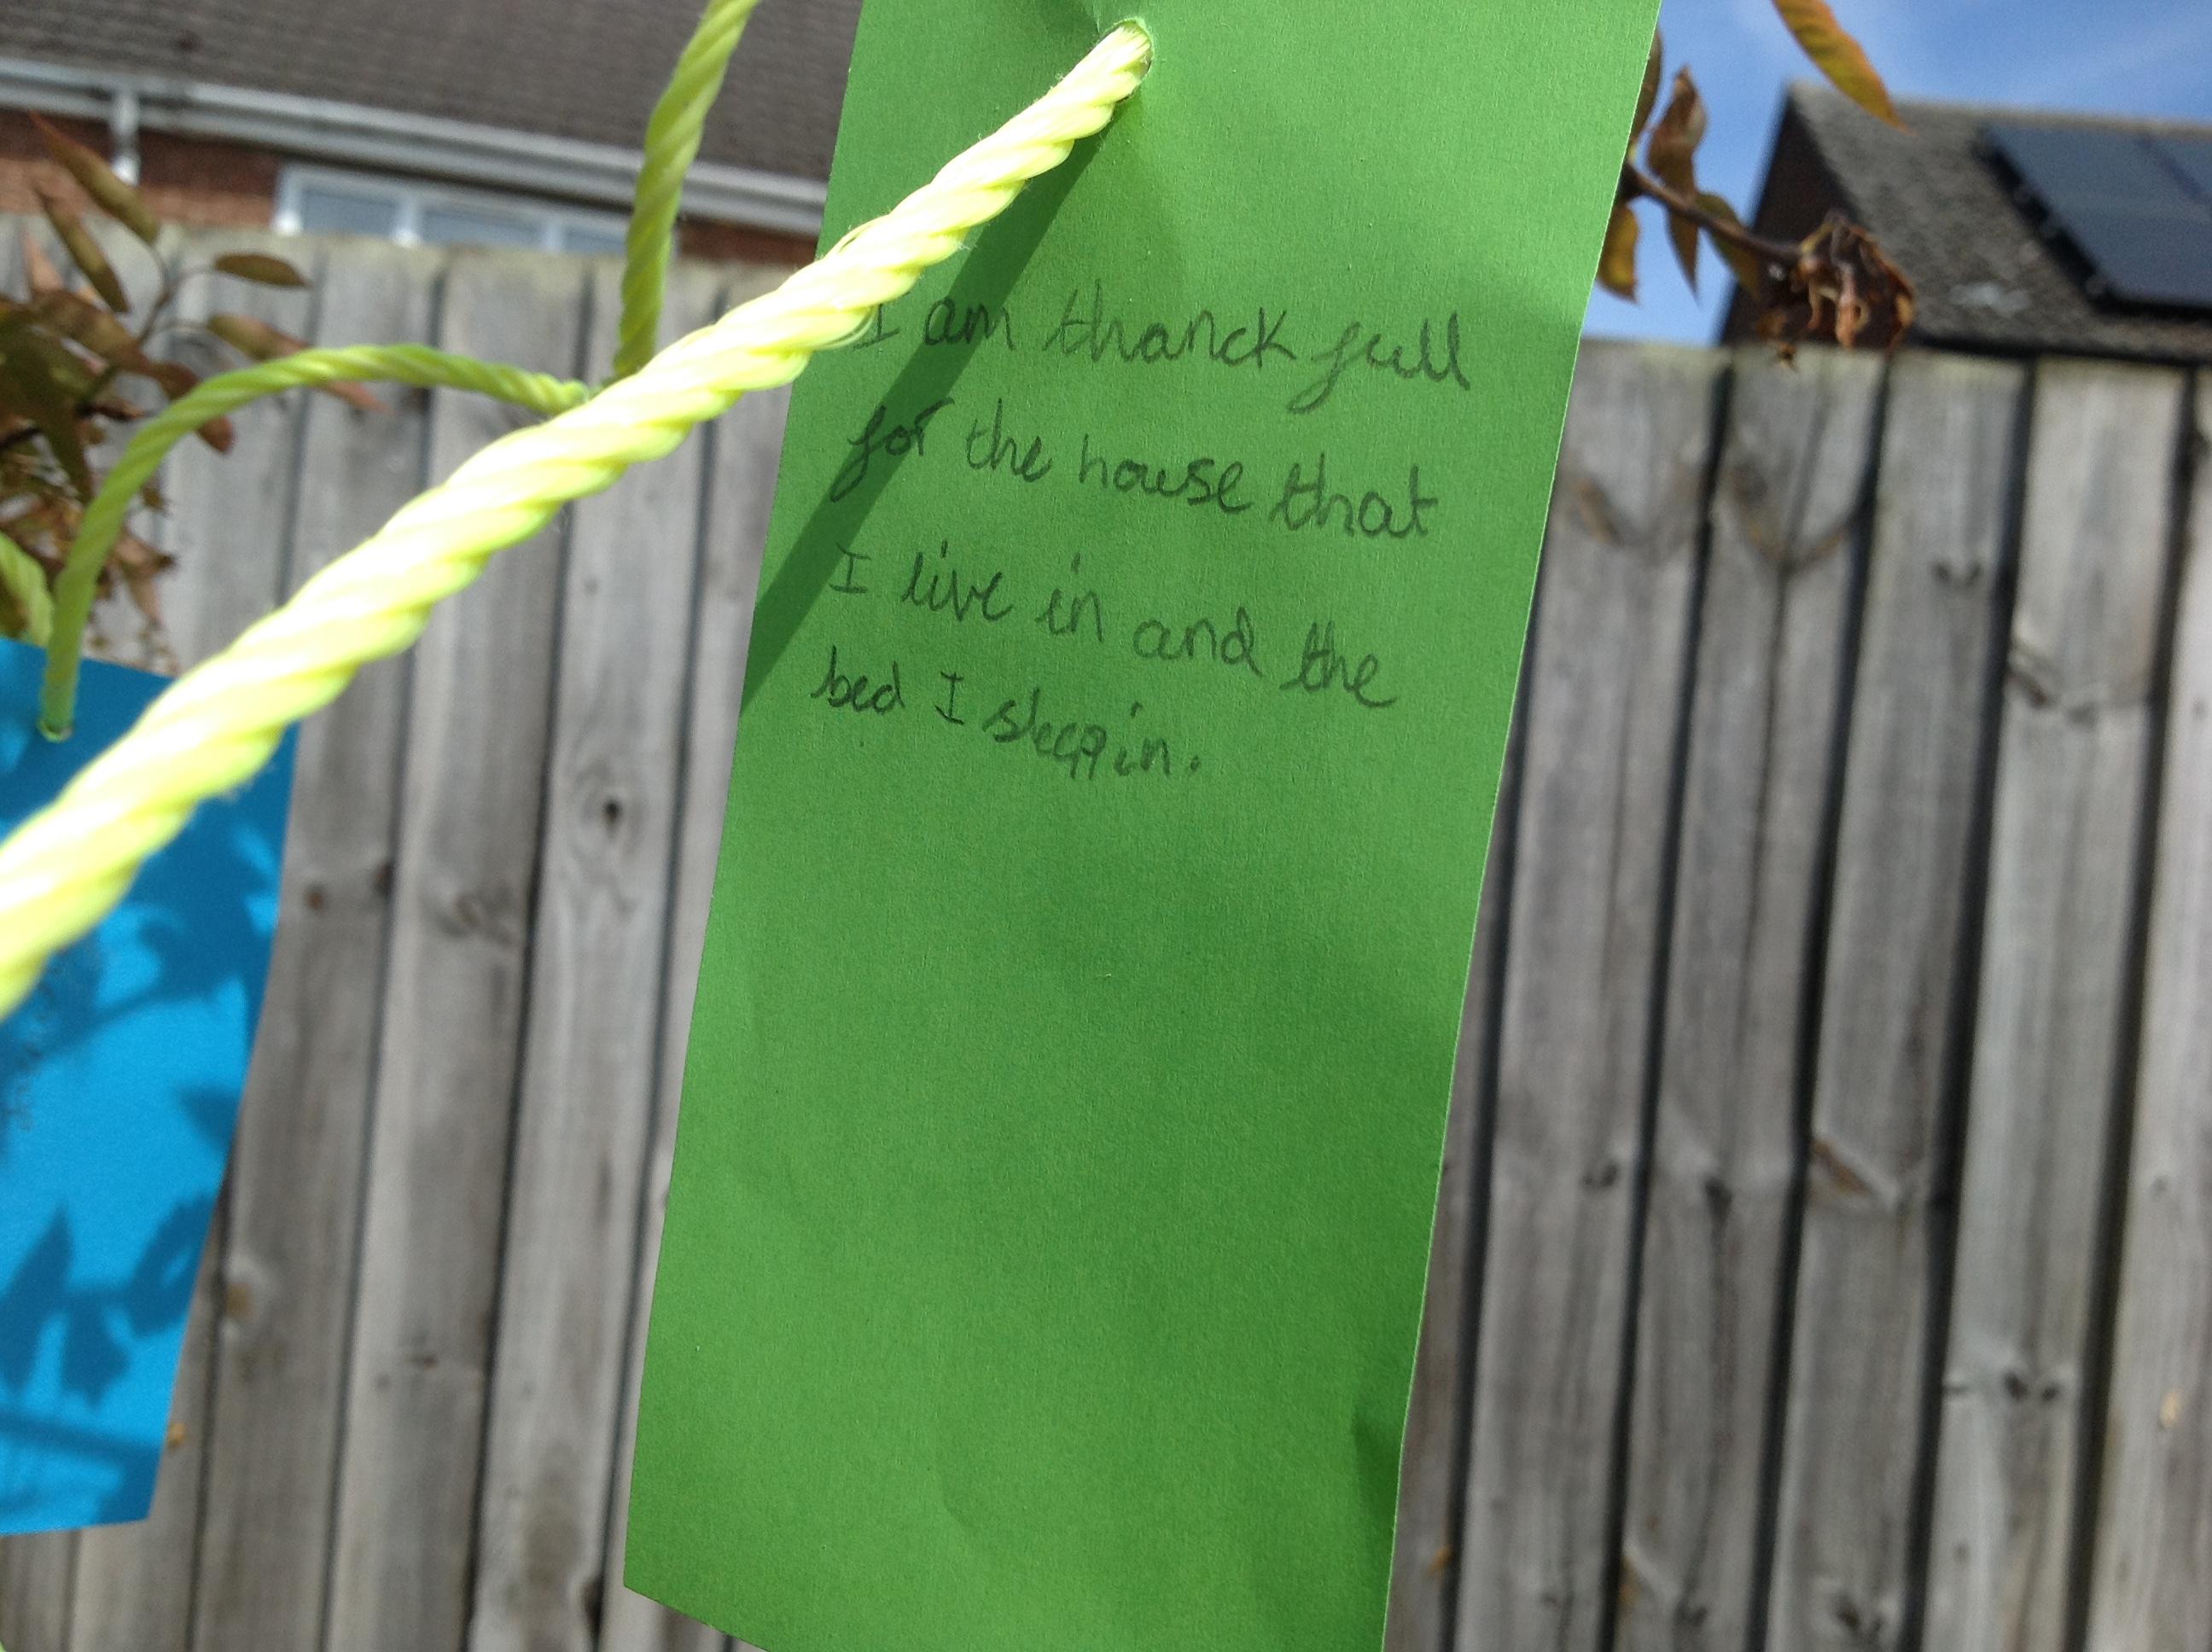 I am thanck full
for the house that
I live in and the
bed I sleep in.